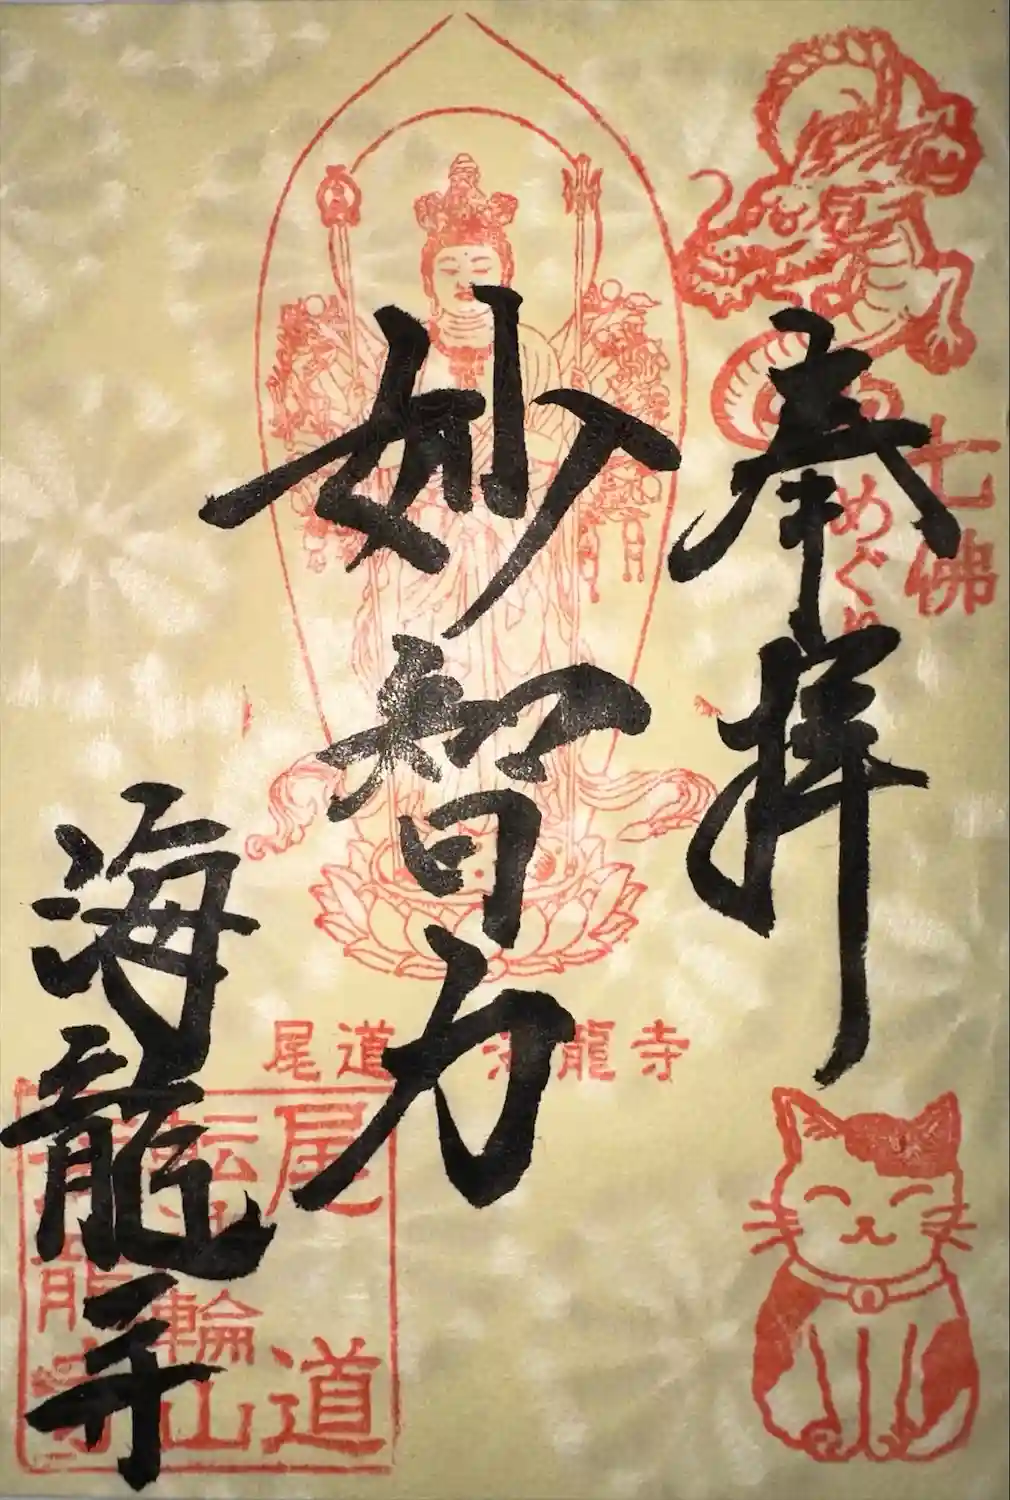 奉拝
七佛
めぐり
妙智力
尾道 海龍寺
海龍寺
尾道
転法輪山
海龍寺